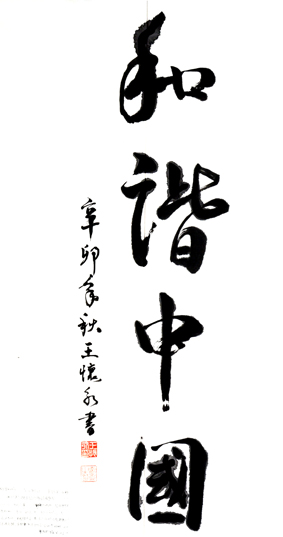 和谐中國
辛卯年秋王懷永書